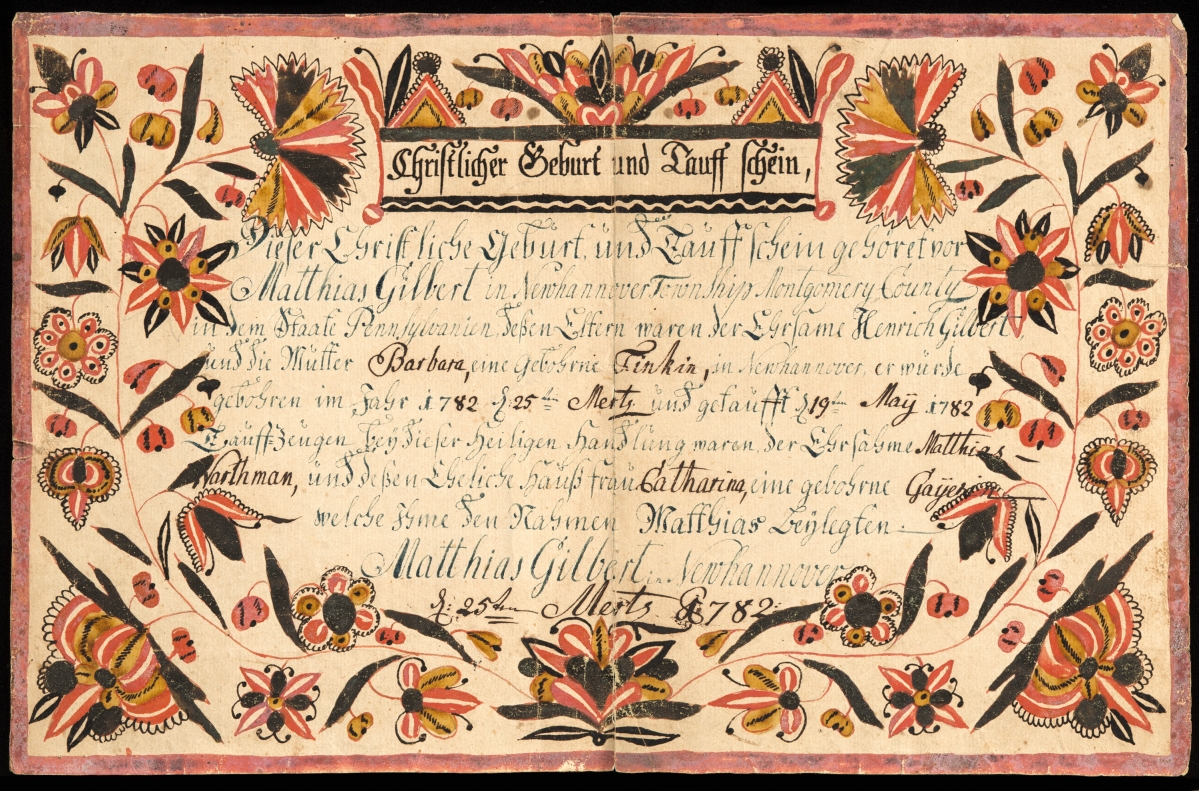 Christlicher Geburt und Tauff schein,
Dieser Christliche Geburt, und Tauff schein gehöret vor
Matthias Gilbert in Newhannover Township Montgomery County
in dem Staate Pennsylvanien deßen Eltern waren der Ehrsame Henrich Gilbert
und die Mutter Barbara, eine gebohrne Finkin, in Newhannover, er wurde
gebohren im Jahr 1782 d 25ten Mertz und getaufft d 19ten Maÿ 1782
Tauff-Zeugen beÿ dieser Heiligen Handlung waren, der Ehrsahme Matthias
Warthman, und deßen Eheliche Hauß frau Catharina, eine gebohrne
welche Ihme den Nahmen Matthias beÿlegten
Matthias Gilbert in Newhannover
d: 25ten Mertz 1782: